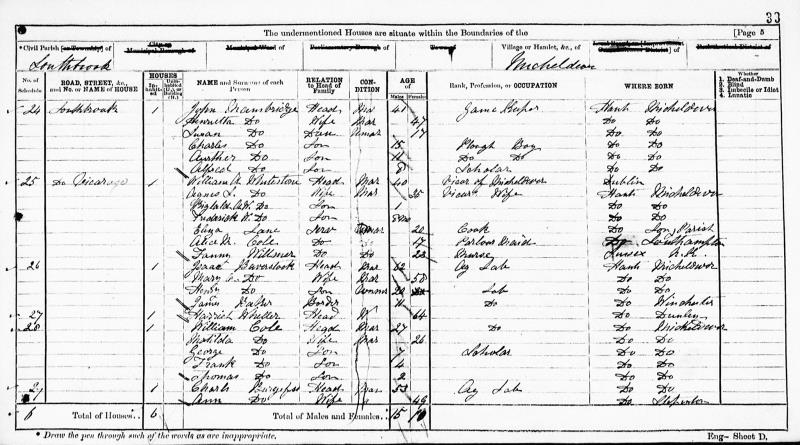 33
The undermentioned Houses are situate within the Boundaries of the [Page 5
*Civil Parish [or Township] of City or Municipal Borough of Municipal Ward of Parliamentary Borough of Borough of Village or Hamlet, &c., of
Southbrook Micheldever
No. of Schedule ROAD, STREET, &c., and No. or NAME of HOUSE HOUSES Inhabited NAME and Surname of each Person RELATION to Head of Family CONDITION AGE of Males Females Rank, Profession, or OCCUPATION WHERE BORN Whether 1. Deaf-and-Dumb 2. Blind 3. Imbecile or Idiot 4. Lunatic
24 Southbrook 1 John Head Mar 41 Game Keeper Hants Micheldever
Henrietta Do Wife Mar 47 Do Do
Susan Do Daur Unmar 17 Do Do
Charles Do Son 15 Plough Boy Do Do
Do Son 11 Do Do Do Do
Alfred Do Son 8 Scholar Do Do
25 Do Vicarage 1 William Head Mar 40 Vicar of Micheldever Dublin
Agnes Do Wife Mar 25 Vicar's Wife Hants Micheldever
Do Son 1 Do Do
Frederick W. Do Son Do Do
Eliza Lane Serv 20 Cook Do
Alice M. Cole Do 17 Parlour Maid Do Southampton
Fanny Do Do 23 Nurse Sussex
26 1 Isaac Baverstock Head Mar 62 Ag Lab Hants Micheldever
Mary Do Wife Mar 58 Do Do
Henry Do Son Unmar 20 Lab Do Do
James Baker 11 Do Do Winchester
27 1 Harriet Wheeler Head W 64 Do
28 1 William Cole Head Mar 27 Do Do Micheldever
Matilda Do Wife Mar 26 Do Do
George Do Son 7 Scholar Do Do
Frank Do Son 4 Do Do
Thomas Do Son 2 Do Do
29 1 Charles Head Mar 53 Ag Lab Do Do
Ann Do Wife 49 Do
6 Total of Houses.. 6 Total of Males and Females.. 15 10
* Draw the pen through such of the words as are inappropriate. Eng— Sheet D.